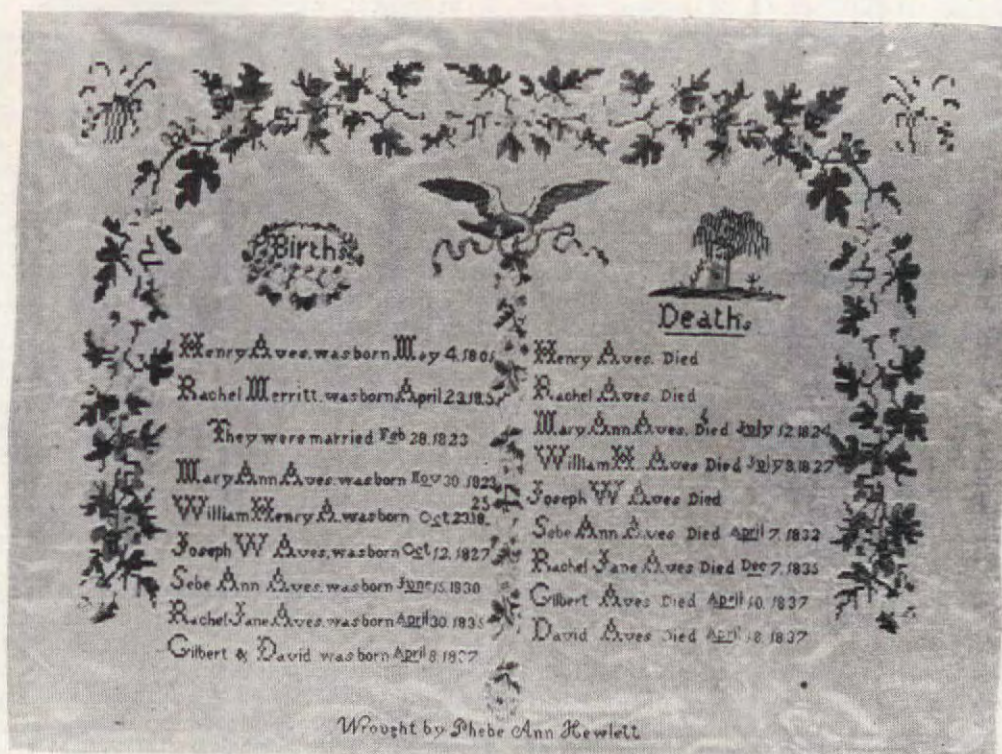 Births
Henry Aves. was born May 4. 1801
Rachel Merritt. was born April 23.
They were married Feb 28. 1823
Mary Ann Aves. was born Nov 30. 1823
William Henry A. was born Oct 23. 18 25
Joseph W Aves. was born Oct 12. 1827
Sebe Ann Aves. was born June 15. 1830
Rachel Jane Aves. was born April 30. 1835
Gilbert & David was born April 8 1837
Death.
Henry Aves. Died
Rachel Aves. Died
Mary Ann Aves. Died July 12. 1824
William H. Aves Died July 8. 1827
Joseph W Aves Died
Sebe Ann Aves Died April 7. 1832
Rachel Jane Aves Died Dec 7. 1835
Gilbert Aves Died April 10. 1837
David Aves Died April 18. 1837
Wrought by Phebe Ann Hewlett